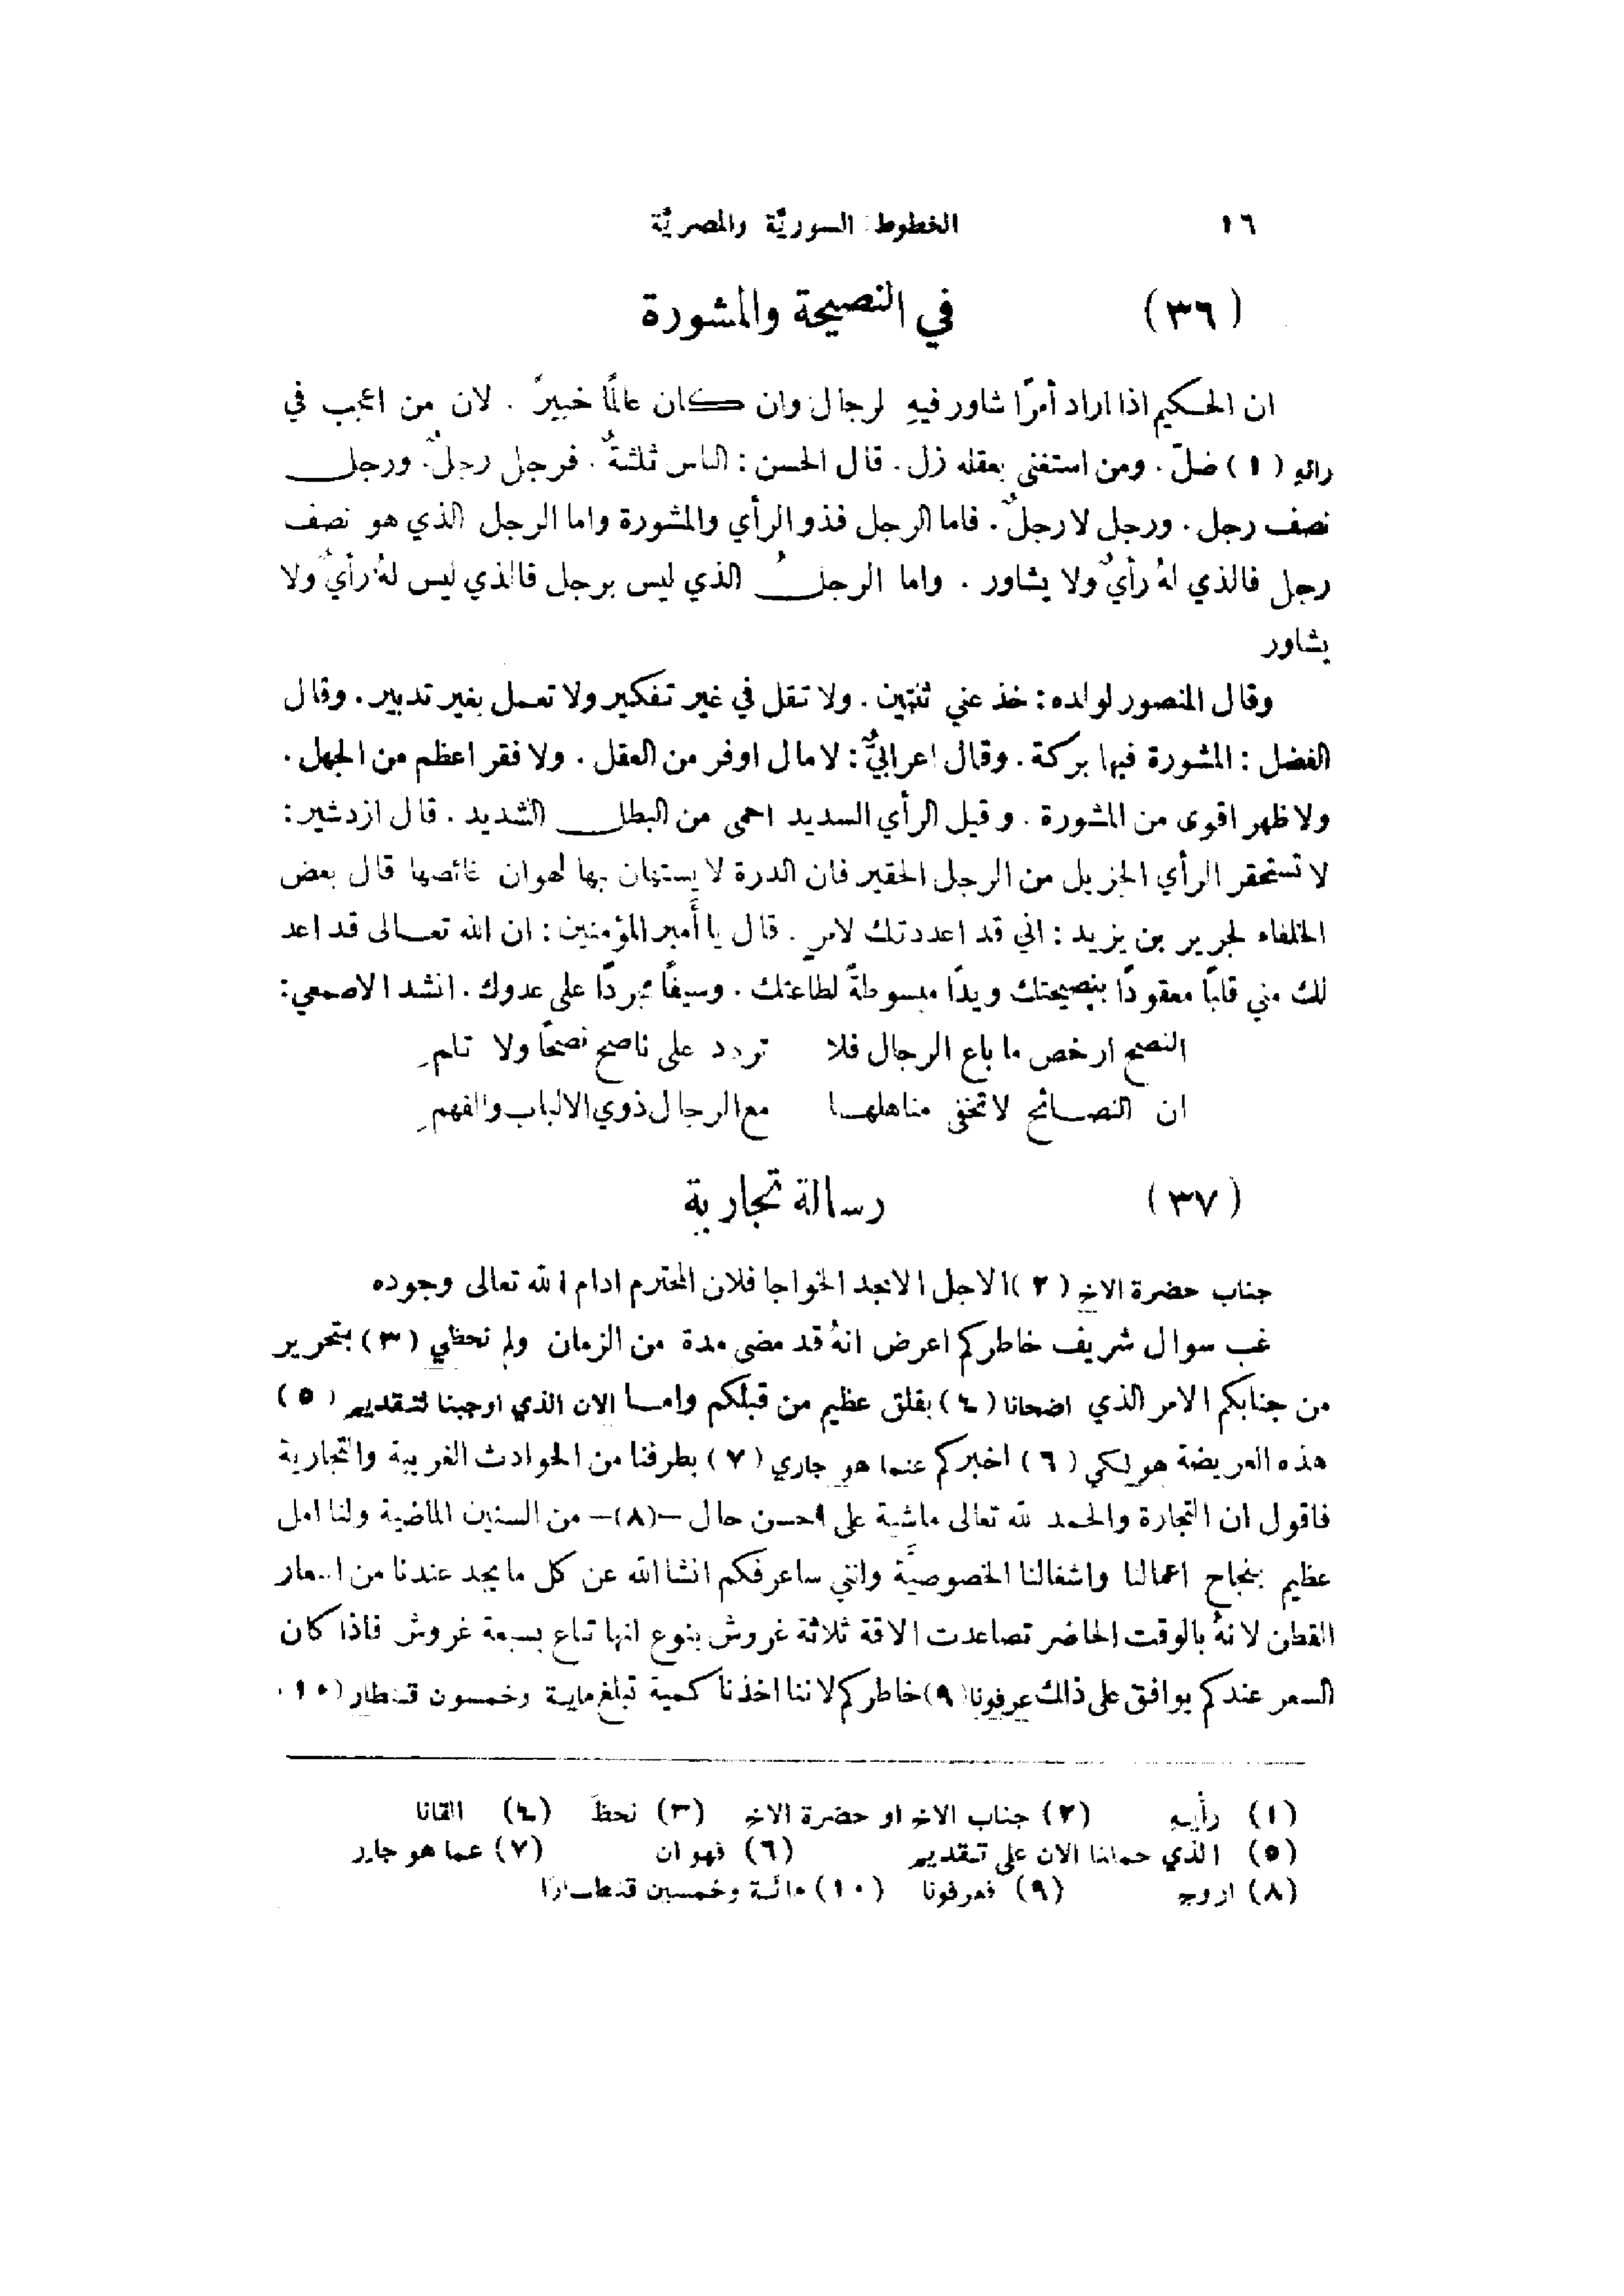 ١٦ الخطوط السوريَّة والمصريَّة
(٣٦) في النصيحة والمشورة
ان الحكيم اذا اراد أمرًا شاور فيهِ لرجال وان كان عالمًا خبيرً . لان من اعجب في
رائهِ (١) ضلّ . ومن استغنى بعقله زل . قال الحسن : الناس ثلثةٌ . فرجل رجلٌ . ورجل
نصف رجل . ورجل لا رجلٌ . فاما الرجل فذو الرأي والمشورة واما الرجل الذي هو نصف
رجل فالذي لهُ رأيٌ ولا يشاور . واما الرجلُ الذي ليس برجل فالذي ليس لهُ رأيٌ ولا
يشاور
وقال المنصور لولده : خذ عني ثنتين . ولا تقل في غير تفكير ولا تعمل بغير تدبير . وقال
الفضل : المشورة فيها بركة . وقال اعرابيٌّ : لا مال اوفر من العقل . ولا فقر اعظم من الجهل .
ولا ظهر اقوى من المشورة . وقيل الرأي السديد احمى من البطل الشديد . قال ازدشير :
لا تستحقر الرأي الجزيل من الرجل الحقير فان الدرة لا يستهان بها لهوان غائصها قال بعض
الخلفاء لجرير بن يزيد : اني قد اعددتك لامرٍ . قال يا أَمير المؤمنين : ان الله تعالى قد اعد
لك مني قلبًا معقودًا بنصيحتك ويدًا مبسوطةً لطاعتك . وسيفًا مجردًا على عدوك . انشد الاصمعي :
النصح ارخص ما باع الرجال فلا تردد على ناصح نصحًا ولا تلمِ
ان النصائح لا تخفى مناهلها مع الرجال ذوي الالباب والفهمِ
(٣٧) رسالة تجارية
جناب حضرة الاخ (٢) الاجل الامجد الخواجا فلان المحترم ادام الله تعالى وجوده
غب سوال شريف خاطركم اعرض انهُ قد مضى مدة من الزمان ولم نحظي (٣) بتحرير
من جنابكم الامر الذي اضحانا (٤) بقلق عظيم من قبلكم واما الان الذي اوجبنا لتقديم (٥)
هذه العريضة هو لكي (٦) اخبركم عنما هو جاري (٧) بطرفنا من الحوادث الغريبة والتجارية
فاقول ان التجارة والحمد لله تعالى ماشية على احسن حال –(٨)– من السنين الماضية ولنا امل
عظيم بنجاح اعمالنا واشغالنا الخصوصيَّة وانني ساعرفكم انشا الله عن كل ما يجد عندنا من اسعار
القطن لانهُ بالوقت الحاضر تصاعدت الاقة ثلاثة غروش بنوع انها تباع بسبعة غروش فاذا كان
السعر عندكم يوافق على ذالك عرفونا (٩) خاطركم لاننا اخذنا كمية تبلغ ماية وخمسون قنطار (١٠)
(١) رأيهِ (٢) جناب الاخ او حضرة الاخ (٣) نحظَ (٤) القانا
(٥) الذي حملنا الان على تقديم (٦) فهو ان (٧) عما هو جارٍ
(٨) اروج (٩) فعرفونا (١٠) مائة وخمسين قنطارًا